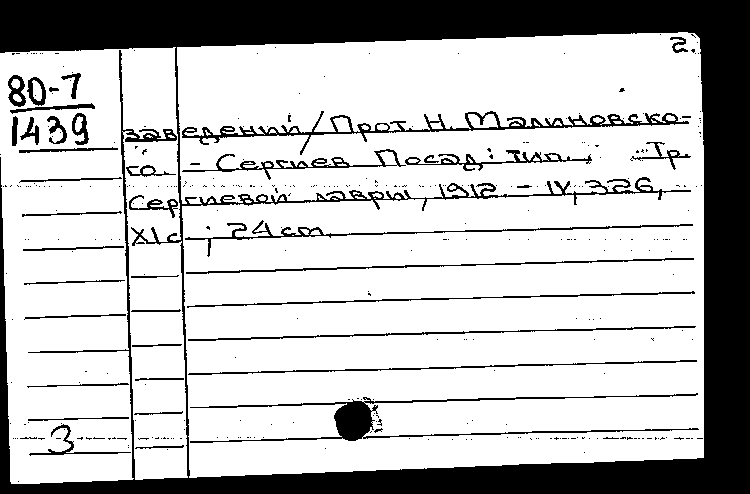 2.
80-7
1439
заведений / Прот. Н. Малиновско-
го. - Сергиев Посад: тип. Тр.
Сергиевой лавры, 1912. - IV, 326,
XI с ; 24 cm.
3